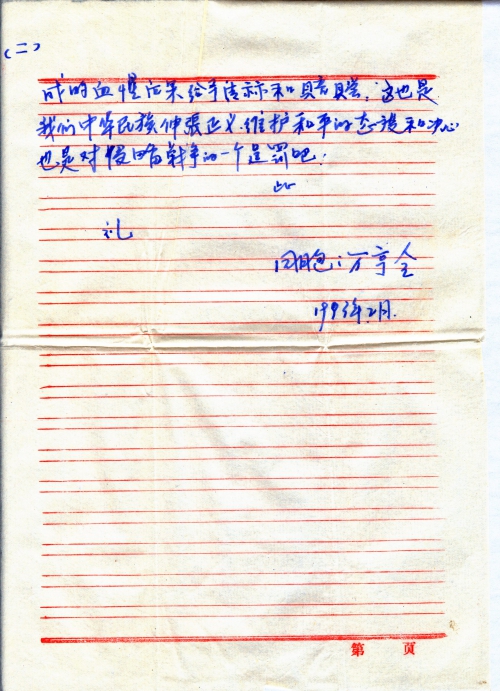 (二)
成的血腥后果给予清算和赔偿，这也是
我们中华民族伸张正义维护和平的态度和决心
也是对侵略战争的一个惩罚吧！
此
礼
同胞：万亨全
1993年2月.
第 页